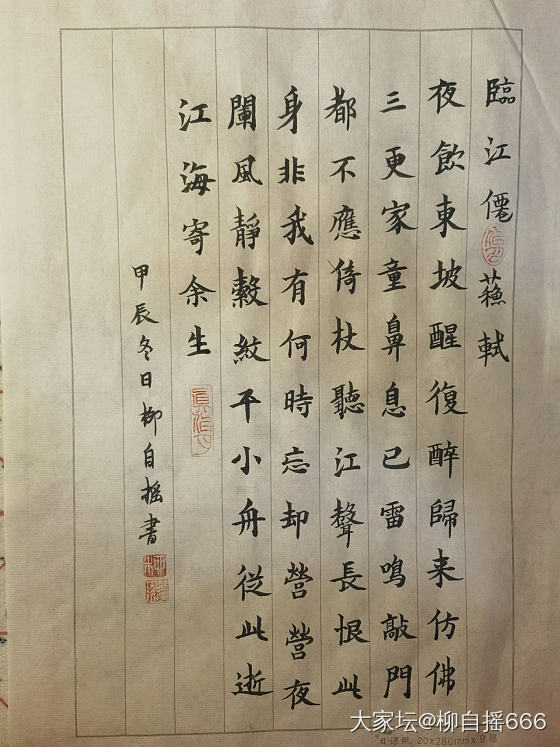 臨江僊 蘓軾
夜飲東坡醒復醉歸来仿佛
三更家童鼻息已雷鳴敲門
都不應倚杖聽江聲長恨此
身非我有何時忘却營營夜
闌風靜縠紋平小舟從此逝
江海寄余生
甲辰冬日柳自摇書
大家坛@柳自摇666
日课纸 20x280mmx9格